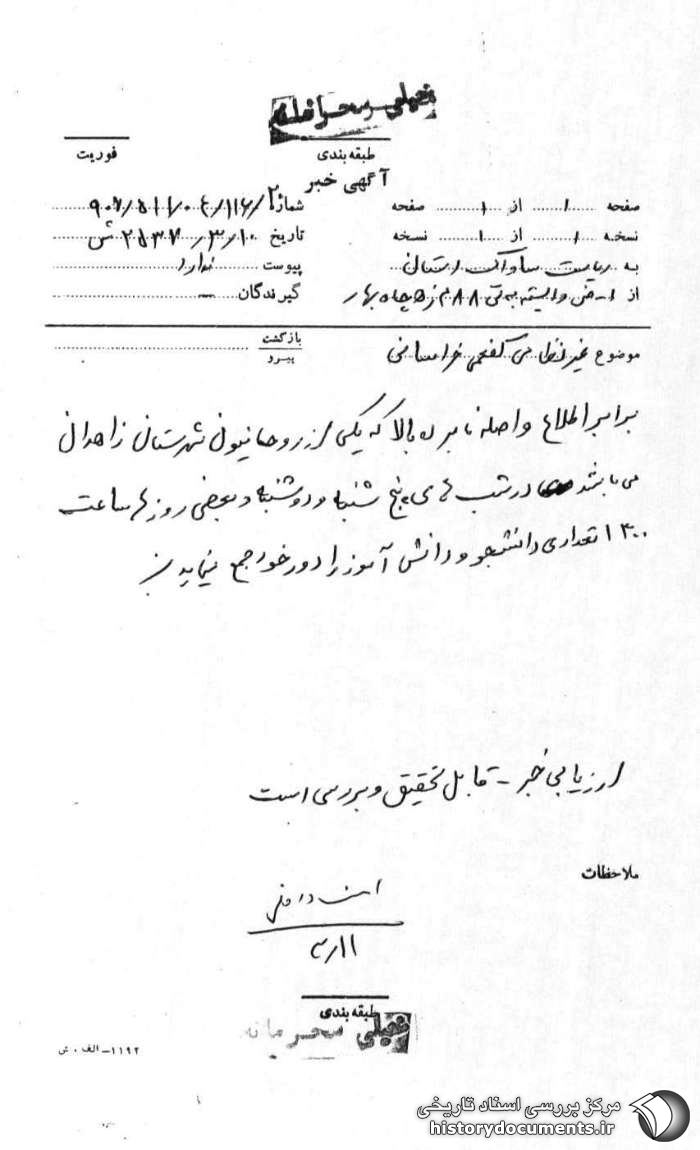 خیلی محرمانه
طبقه‌بندی
فوریت
آگهی خبر
صفحه ۱ از ۱ صفحه
شماره
نسخه ۱ از ۱ نسخه
تاریخ ۲۵۳۷/۳/۱۰ ش
به ریاست ساواک استان
پیوست ندارد
از چاه بهار
گیرندگان ــ
موضوع غیرنظامی کفعمی خراسانی
بازگشت
پیرو
برابر اطلاع واصله نامبرده بالا که یکی از روحانیون شهرستان زاهدان
می باشد در شب های پنج شنبه و دوشنبه و بعضی روزها ساعت
۱۳۰۰ تعدادی دانشجو و دانش آموز را دور خود جمع مینماید
ارزیابی خبر ـ قابل تحقیق و بررسی است
ملاحظات
۳/۱۱
طبقه‌بندی
خیلی محرمانه
۱۱۹۲ـ الف . ش
مرکز بررسی اسناد تاریخی
historydocuments.ir